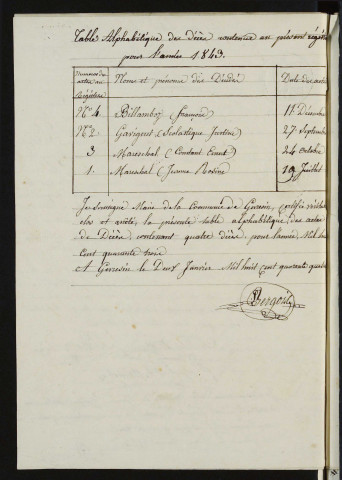 Table Alphabétique des décès contenus au présent régistre
pour l'année 1843.
Numéros des actes au Régistre
Noms et prénoms des Décédés
Date des actes
N° 4 Billamboz (françois) 11 Décembre
N° 2 Garigent (Scolastique Justine) 27 Septembre
3 Mareschal (Constant Ernest) 24 Octobre
1 Mareschal (Jeanne Rosine) 19 Juillet
Je soussigné Maire de la Commune de certifie véritable
clos et arrêté, la présente table alphabétique des actes
de Décès contenant quatre décès, pour l'année Mil huit
Cent quarante trois
A le Deux Janvier Mil huit Cent quarante quatre